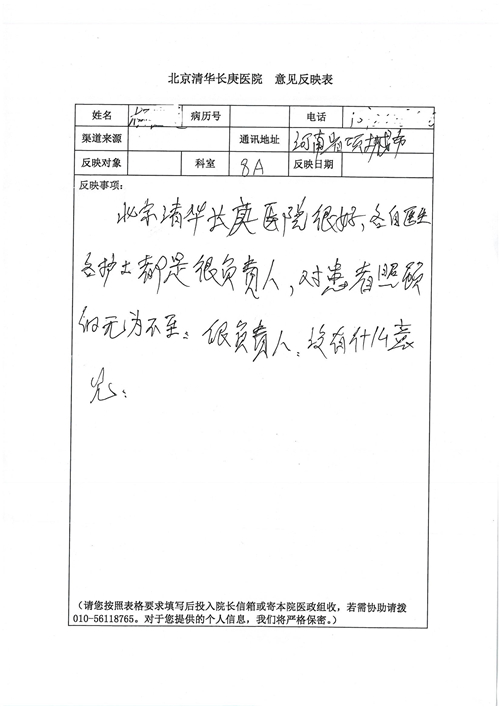 北京清华长庚医院 意见反映表
姓名 病历号 电话
渠道来源 通讯地址 河南省项城市
反映对象 科室 8A 反映日期
反映事项：
北京清华长庚医院很好，各自医生
各护士都是很负责人，对患者照顾
的无为不至。很负责人。没有什么意
见。
（请您按照表格要求填写后投入院长信箱或寄本院医政组收，若需协助请拨
010-56118765。对于您提供的个人信息，我们将严格保密。）